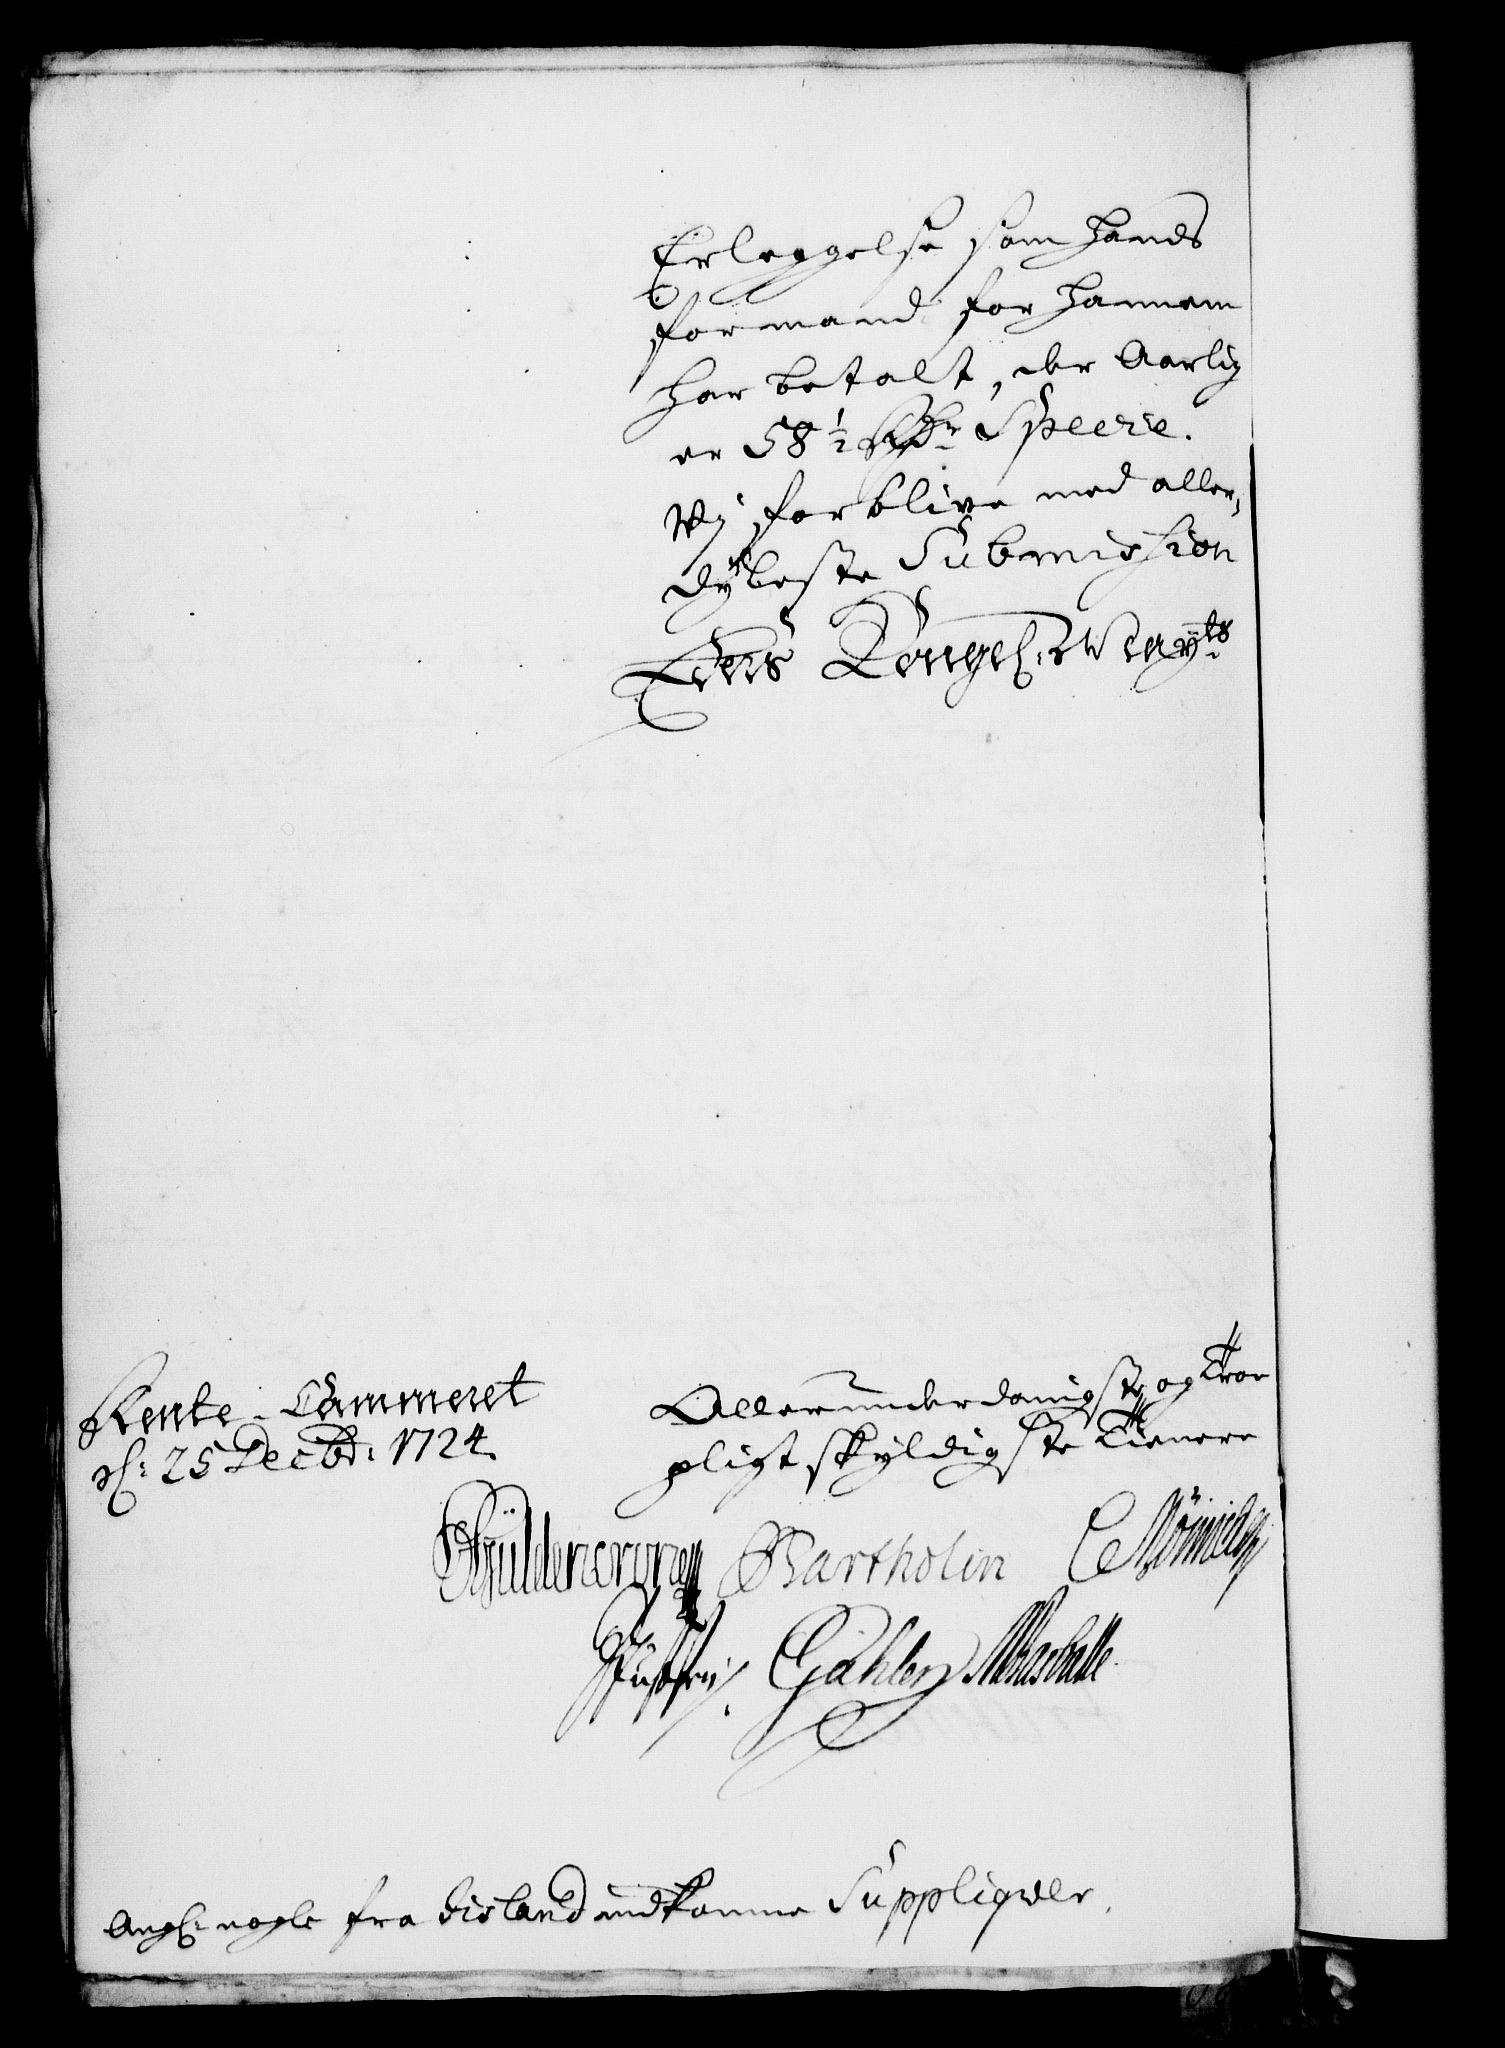 Erleggelse som hands
formand for hannem
har betalt, der Aarlig
er 58 1/2 Rdr Specie.
Wj forblive med aller,
dybeste Submission
Eders Kongel: Mayts
Rente-Cammeret
d: 25 Decbr: 1724.
Allerunderdanigste og troe
pligtskyldigste Tienere
Güldencrone Bartholin
Gåhler
Angl: nogle fra Island indkomne Suppliqver.